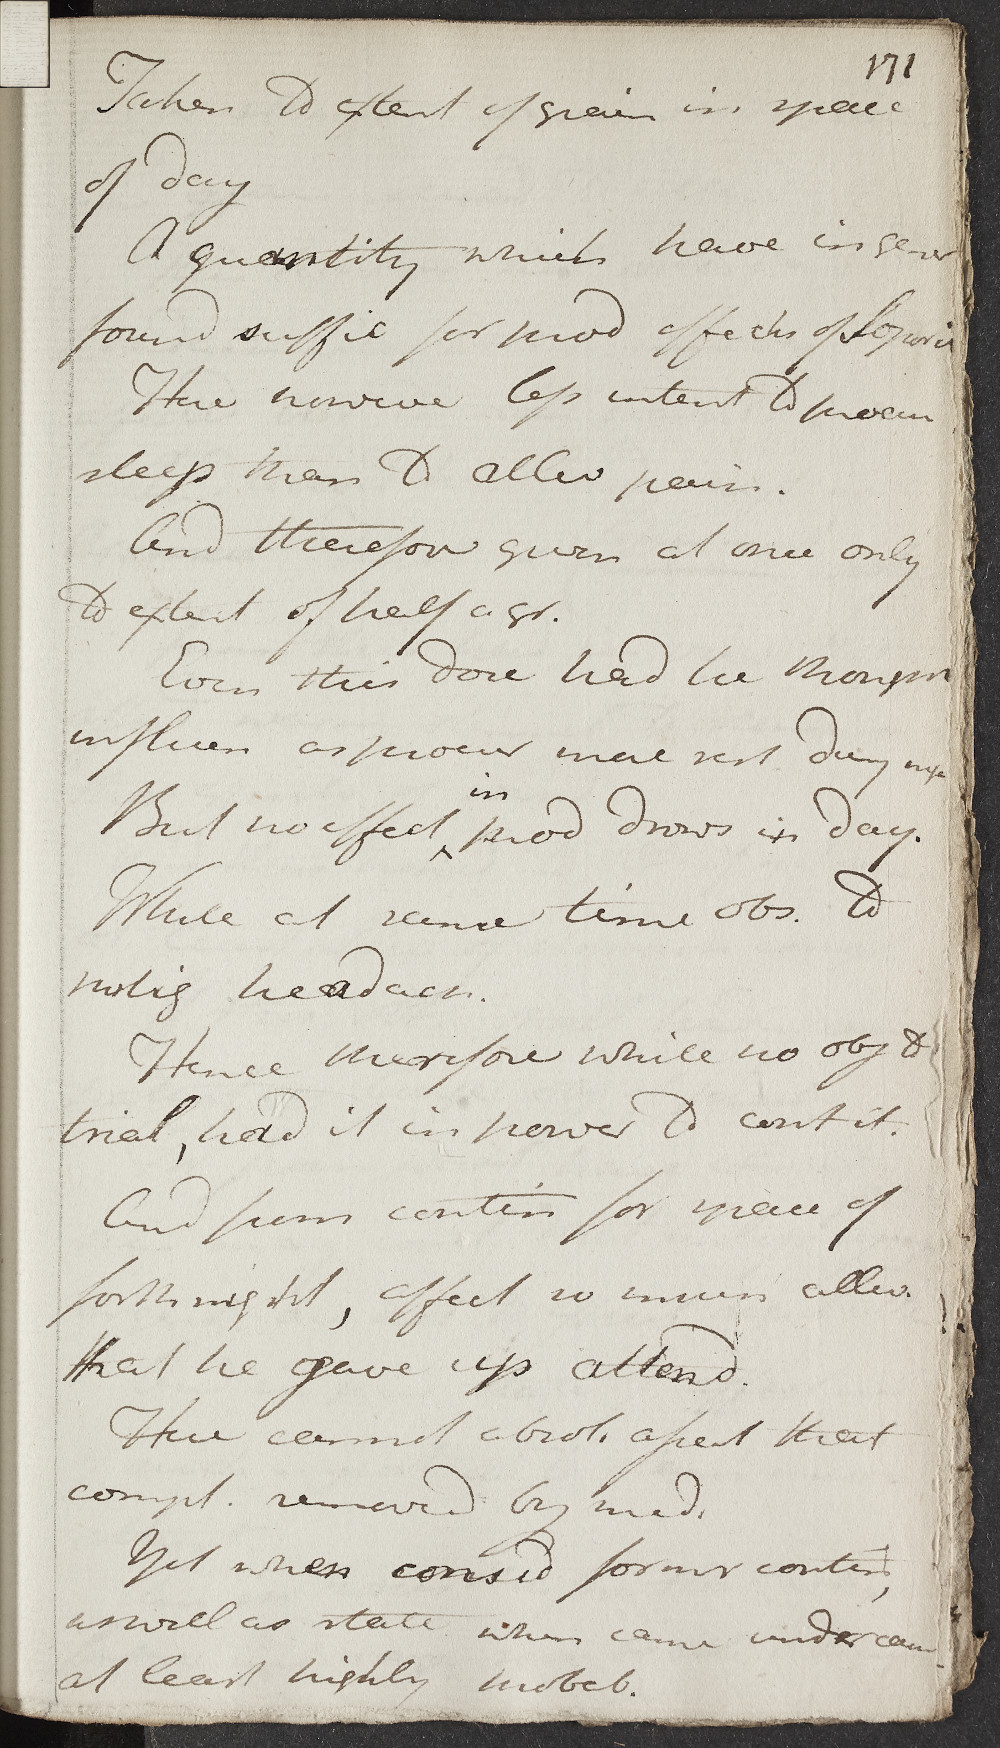 171
Taken to extent of grain in space
of day
A quantity which have in gener
found suffic for prod effects of Soporic
Here howeve less intent to procur
sleep than to allev pain.
And therefore given at once only
to extent of half a gr.
Even this dose had he thought
influen as procur more rest duing
But no effect in prod drows in day.
While at same time obs. to
mitig headach.
Hence therefore while no obj to
trial, had it in power to cont it.
And from contin for space of
forthnight, effect so much allev.
that he gave up attend.
Here cannot absol. assert that
compl. removed by med.
Yet when consid former contin,
as well as state when came under care
at least highly probab.